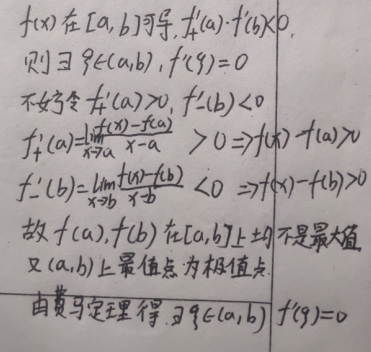 f(x)在[a,b]可导,f₊'(a)·f₋'(b)<0,
则∃ξ∈(a,b),f'(ξ)=0
不妨令f₊'(a)>0,f₋'(b)<0
f₊'(a)=lim_{x→a} (f(x)-f(a))/(x-a) >0⇒f(x)-f(a)>0
f₋'(b)=lim_{x→b} (f(x)-f(b))/(x-b) <0⇒f(x)-f(b)>0
故f(a),f(b)在[a,b]上均不是最大值
又(a,b)上最值点为极值点
由费马定理得∃ξ∈(a,b) f'(ξ)=0